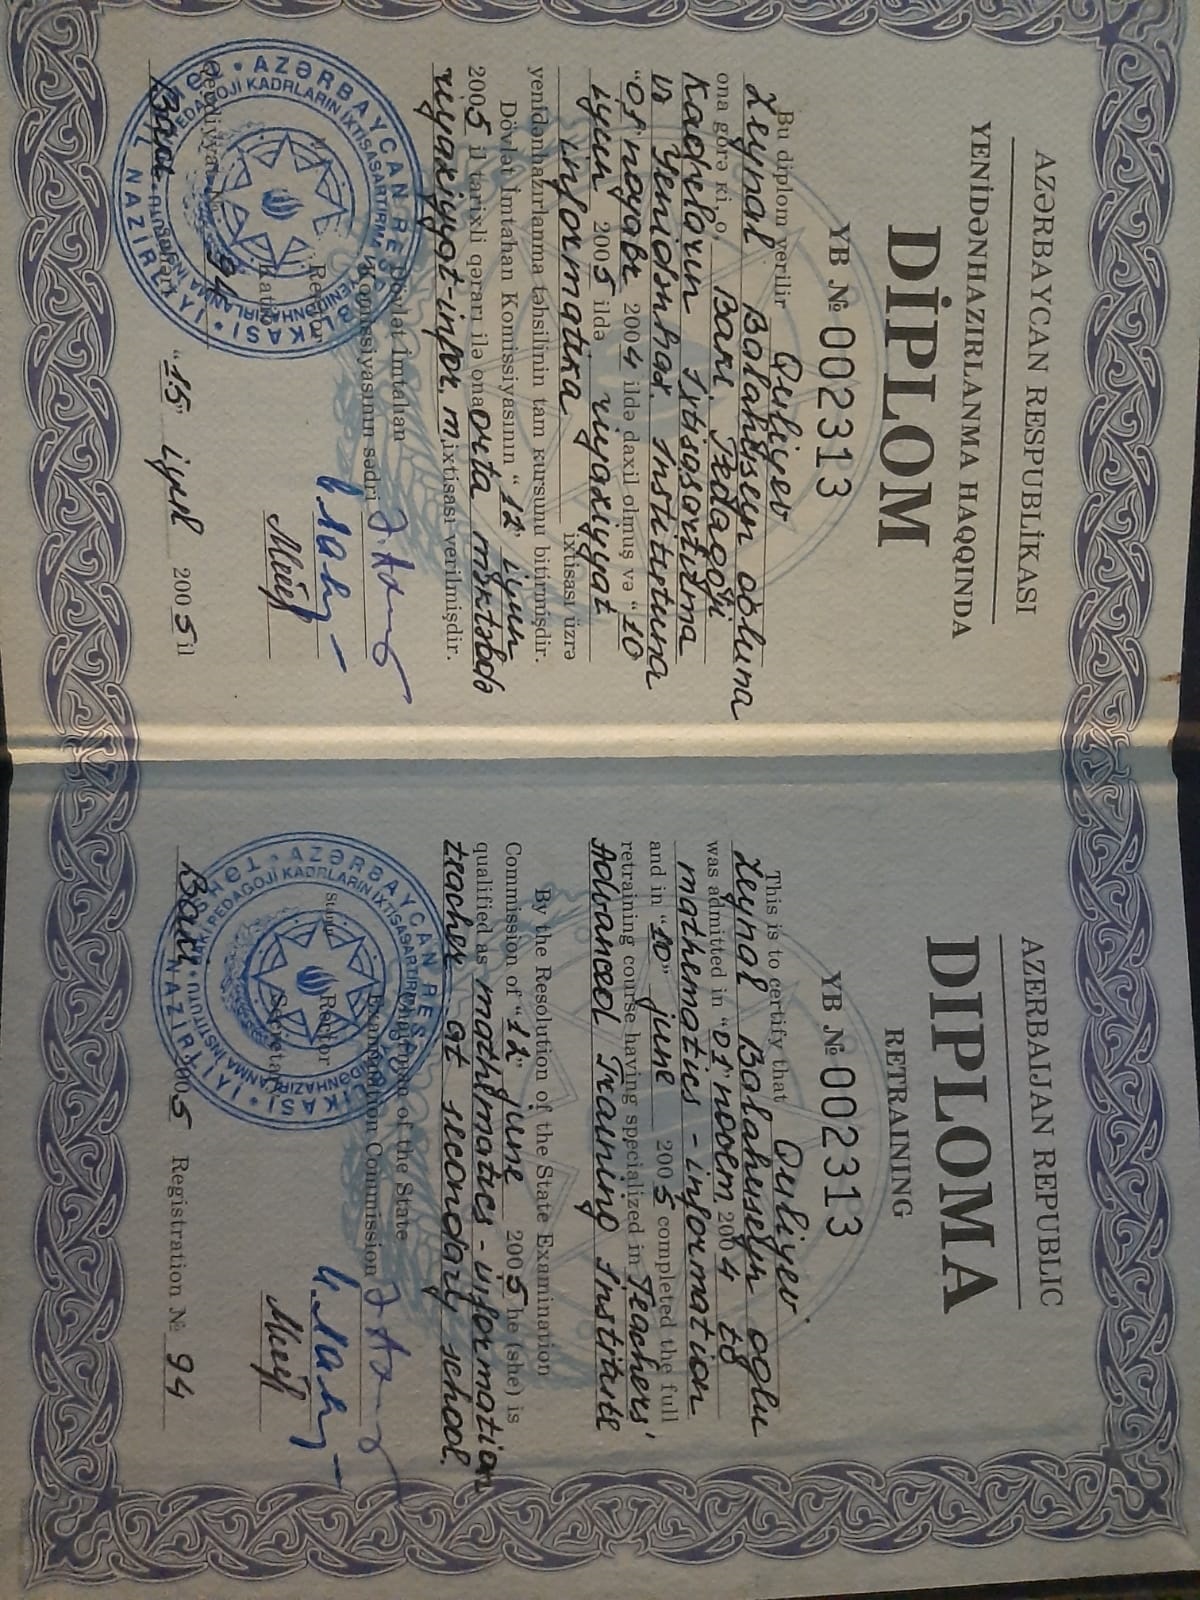 AZƏRBAYCAN RESPUBLİKASI
YENİDƏNHAZIRLANMA HAQQINDA
DİPLOM
YB № 002313
Bu diplom verilir Quliyev
Zeynal Balahüseyn oğluna
ona görə ki, o, Bakı Pedagoji
Kadrların İxtisasartırma
və Yenidənhaz. İnstitutuna
"01" noyabr 2004 ildə daxil olmuş və "10"
iyun 2005 ildə riyaziyyat
informatika ixtisası üzrə
yenidənhazırlanma təhsilinin tam kursunu bitirmişdir.
Dövlət İmtahan Komissiyasının "12" iyun
2005 il tarixli qərarı ilə ona orta məktəbdə
riyaziyyat-infor. m. ixtisası verilmişdir.
Dövlət İmtahan
Komissiyasının sədri
Rektor
Katib
94
Bakı
"15" iyul 2005 il
AZERBAIJAN REPUBLIC
DIPLOMA
RETRAINING
YB № 002313
This is to certify that Quliyev
Zeynal Balahuseyn oglu
was admitted in "01" novem 2004 to
mathematics - information
and in "10" june 2005 completed the full
retraining course having specialized in Teachers'
Advanced Training Institute
By the Resolution of the State Examination
Commission of "12" june 2005 he (she) is
qualified as mathematics - information
teacher at secondary school.
Chairman of the State
Examination Commission
Rector
Secretary
Stamp
Bakı 2005 Registration № 94